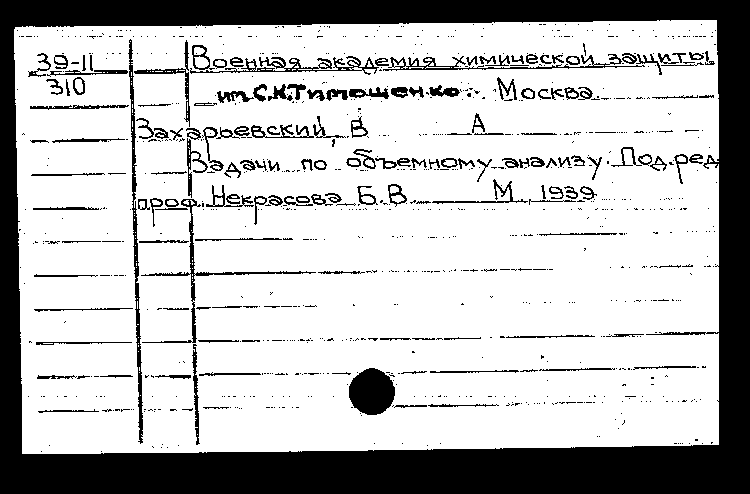 39-11 Военная академия химической защиты
310 им. С.К. Тимошенко. Москва.
Захарьевский, В А
Задачи по объемному анализу. Под. ред.
проф. Некрасова Б.В. М., 1939